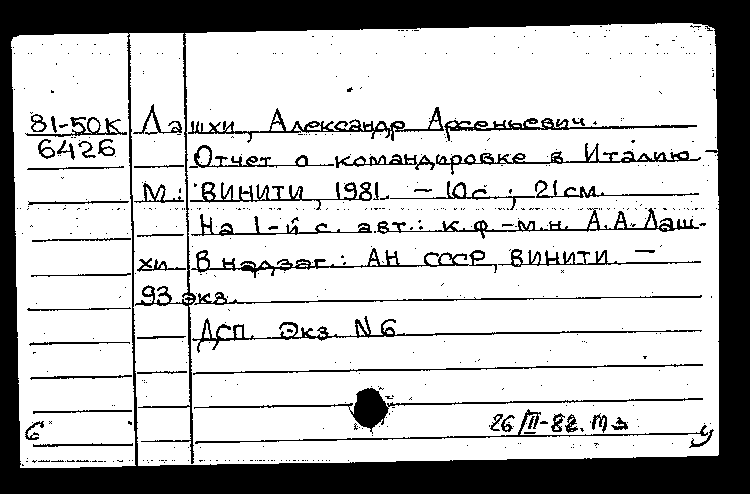 81-50К Лашхи, Александр Арсеньевич.
6426 Отчет о командировке в Италию –
М.: ВИНИТИ, 1981. – 10с.; 21см.
На 1-й с. авт.: к.ф.-м.н. А.А.Лаш-
хи В надзаг.: АН СССР, ВИНИТИ. –
93 экз.
ДСП. Экз. N 6
26/II-82.